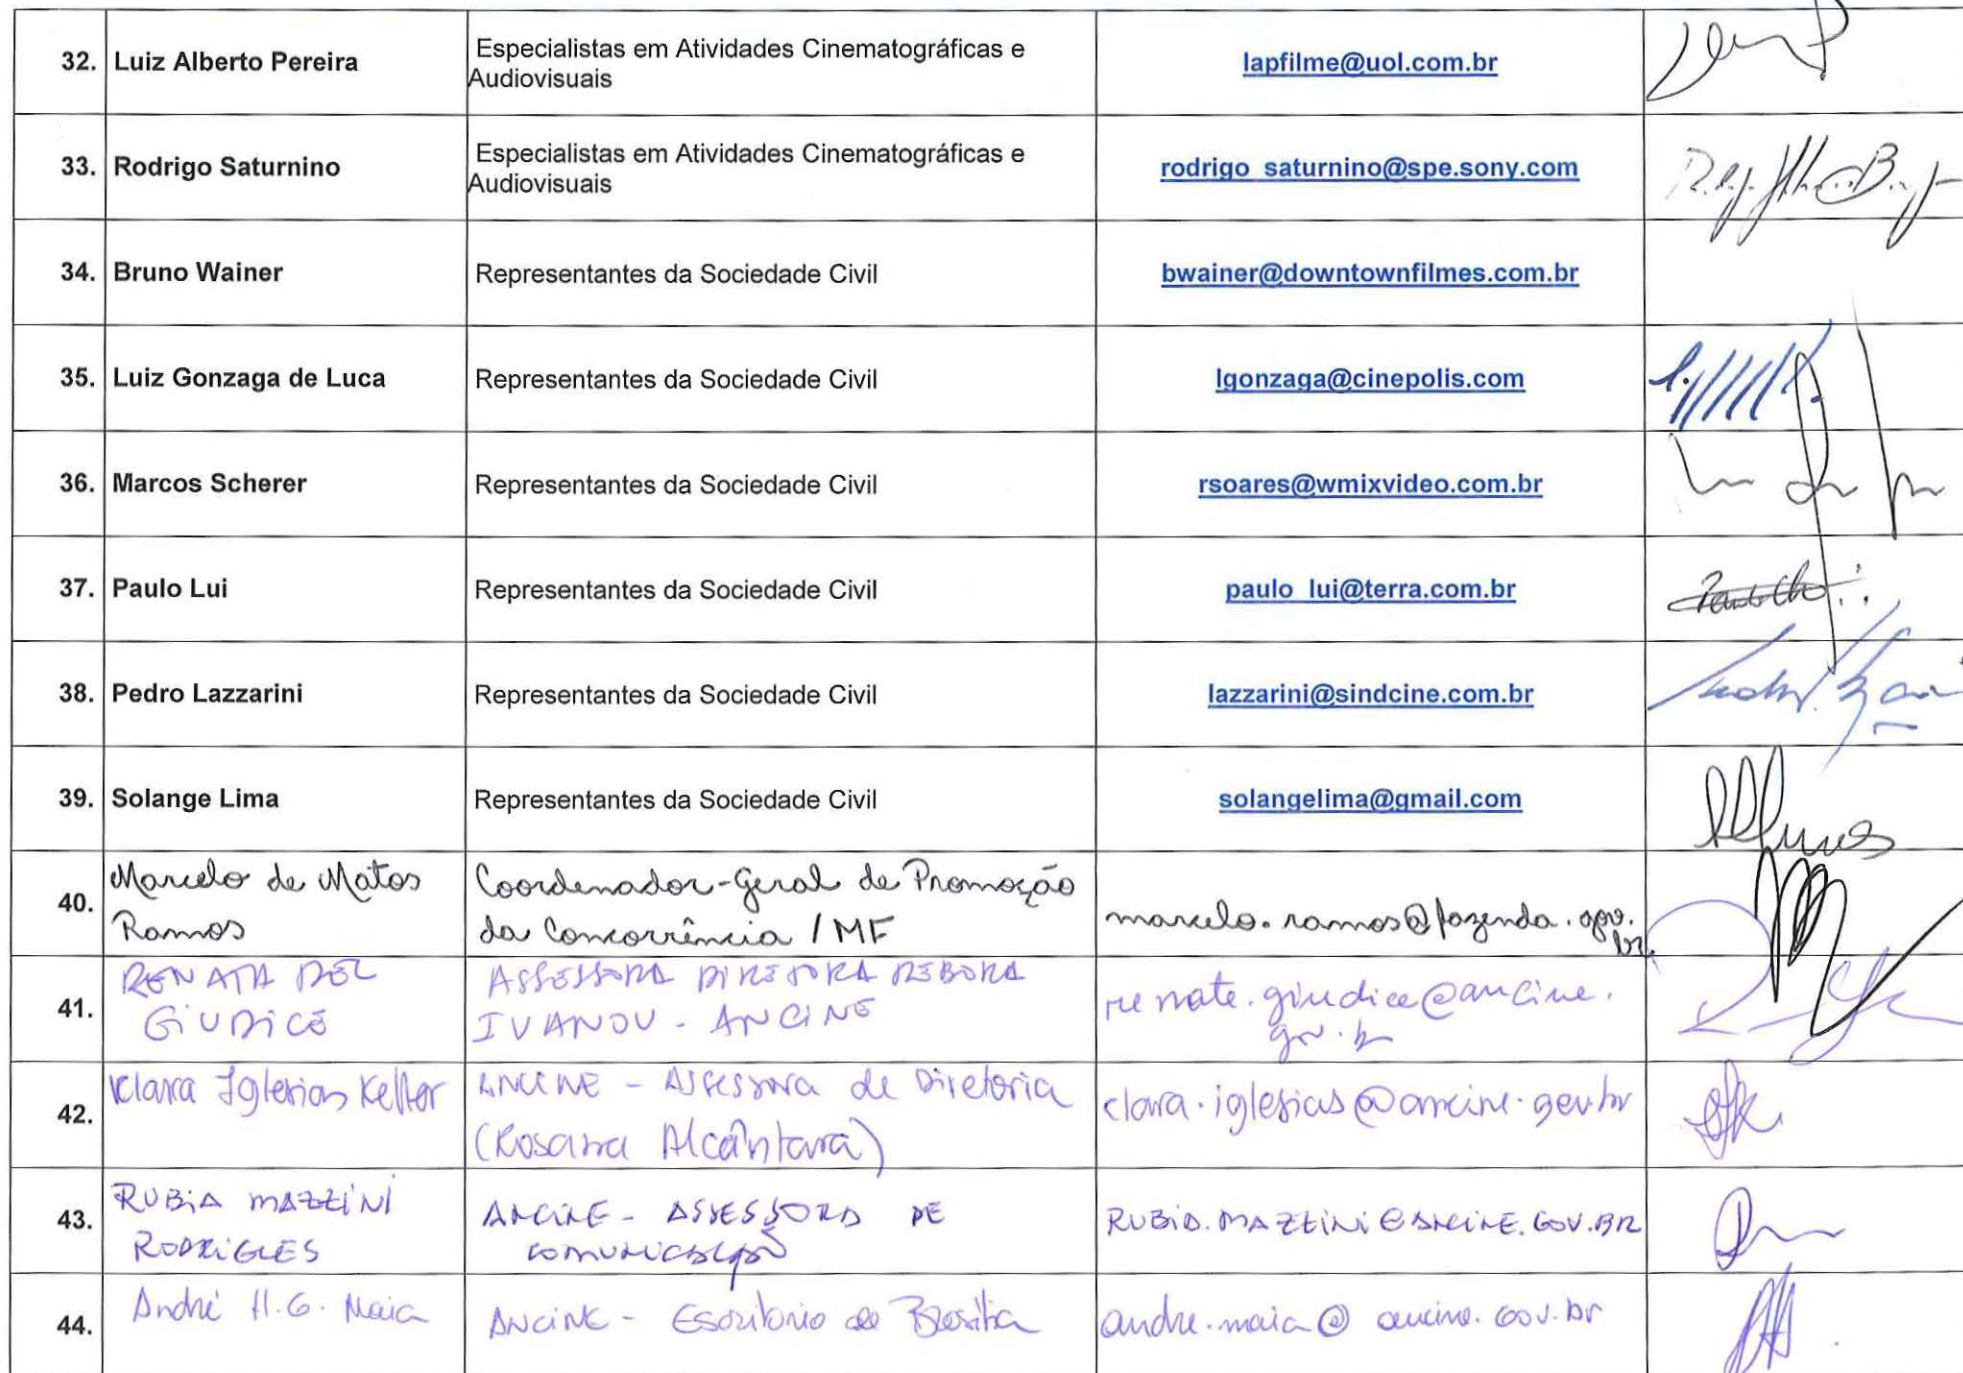 32. Luiz Alberto Pereira Especialistas em Atividades Cinematográficas e lapfilme@uol.com.br
Audiovisuais
33. Rodrigo Saturnino Especialistas em Atividades Cinematográficas e rodrigo_saturnino@spe.sony.com
Audiovisuais
34. Bruno Wainer Representantes da Sociedade Civil bwainer@downtownfilmes.com.br
35. Luiz Gonzaga de Luca Representantes da Sociedade Civil lgonzaga@cinepolis.com
36. Marcos Scherer Representantes da Sociedade Civil rsoares@wmixvideo.com.br
37. Paulo Lui Representantes da Sociedade Civil paulo_lui@terra.com.br
38. Pedro Lazzarini Representantes da Sociedade Civil lazzarini@sindcine.com.br
39. Solange Lima Representantes da Sociedade Civil solangelima@gmail.com
40. Marcelo de Matos Coordenador-Geral de Promoção marcelo.ramos@fazenda.gov.
Ramos da Concorrência / MF br
41. RENATA DEL ASSESSORA DIRETORA DEBORA renate.giudice@ancine.
GIUDICE IVANOV - ANCINE gov.br
42. Klara Iglesias Keller ANCINE - Assessora de Diretoria clara.iglesias@ancine.gov.br
(Rosana Alcântara)
43. RUBIA MAZZINI ANCINE - ASSESSORA DE RUBIA.MAZZINI@ANCINE.GOV.BR
RODRIGUES COMUNICAÇÃO
44. André H.G. Maia ANCINE - Escritório de Brasília andre.maia@ancine.gov.br